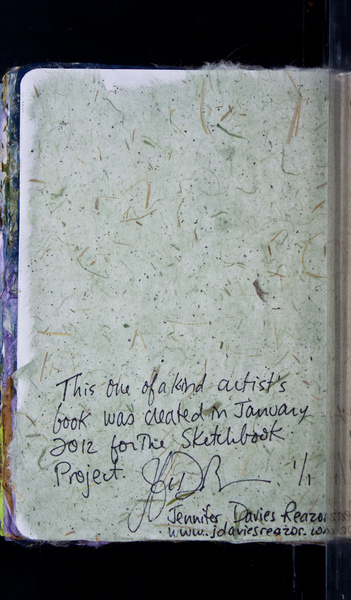 This one of a kind artist's
book was created in January
2012 for The Sketchbook
Project.
1/1
Jennifer Davies Reazor
www.jdaviesreazor.